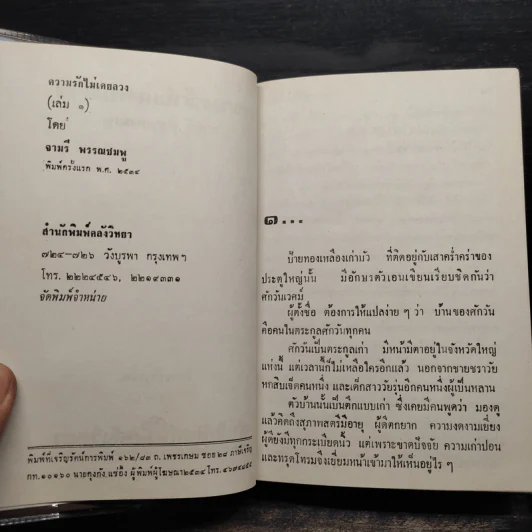 ความรักไม่เคยลวง
(เล่ม ๑)
โดย
จามรี พรรณชมพู
พิมพ์ครั้งแรก พ.ศ. ๒๕๓๔
สำนักพิมพ์คลังวิทยา
๗๒๔-๗๒๖ วังบูรพา กรุงเทพฯ
โทร. ๒๒๒๔๕๔๖, ๒๒๑๙๓๓๑
จัดพิมพ์จำหน่าย
พิมพ์ที่เจริญรัตน์การพิมพ์ ๑๖๒/๔๓ ถ. เพชรเกษม ซอย ๒๘ ภาษีเจริญ
กท. ๑๐๑๖๐ นายคุงกัง แซ่อึ้ง ผู้พิมพ์ผู้โฆษณา ๒๕๓๔ โทร.
๑...
ป้ายทองเหลืองเก่ามัว ที่ติดอยู่กับเสาคร่ำคร่าของ
ประตูใหญ่นั้น มีอักษรตัวเอนเขียนเรียบชิดกันว่า
ศักวันเวศม์
ผู้ตั้งชื่อ ต้องการให้แปลง่าย ๆ ว่า บ้านของศักวัน
คือคนในตระกูลศักวันทุกคน
ศักวันเป็นตระกูลเก่า มีหน้ามีตาอยู่ในจังหวัดใหญ่
แห่งนี้ แต่เวลานี้ก็ไม่เหลือใครอีกแล้ว นอกจากชายชราวัย
หกสิบเจ็ดคนหนึ่ง และเด็กสาววัยรุ่นอีกคนหนึ่งผู้เป็นหลาน
ตัวบ้านนั้นเป็นตึกแบบเก่า ซึ่งเคยมีคนพูดว่า มองดู
แล้วคิดถึงสุภาพสตรีมีอายุ ผู้ดีตกยาก ความงดงามเยี่ยง
ผู้ดียังมีทุกกระเบียดนิ้ว แต่เพราะขาดปัจจัย ความเก่าปอน
และทรุดโทรมจึงเยี่ยมหน้าเข้ามาให้เห็นอยู่ไร ๆ